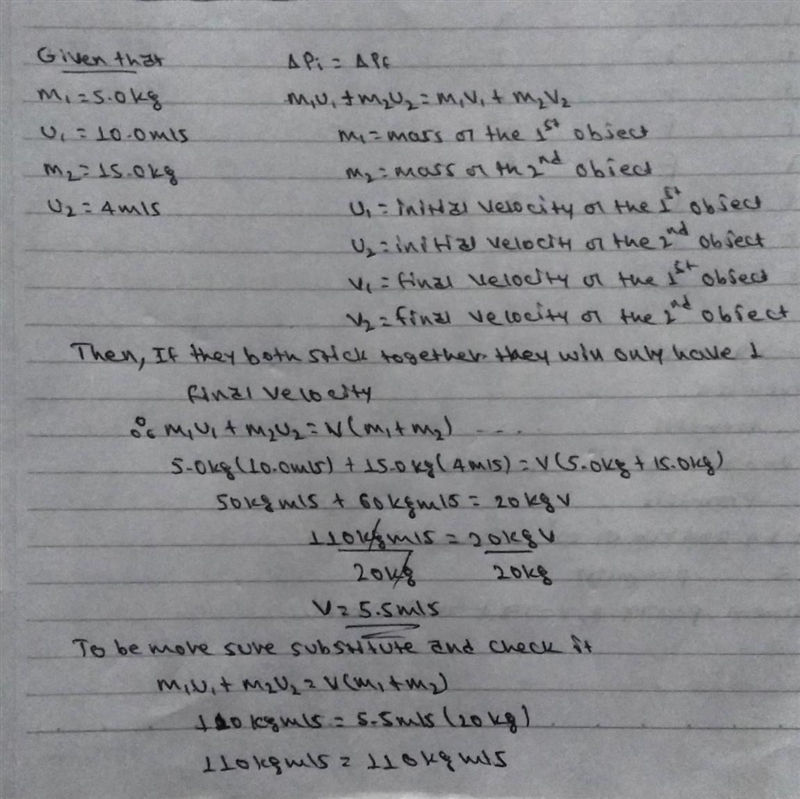 Given that
m₁ = 5.0kg
U₁ = 10.0m/s
m₂ = 15.0kg
U₂ = 4m/s
ΔPi = ΔPf
m₁U₁ + m₂U₂ = m₁V₁ + m₂V₂
m₁ = mass of the 1st object
m₂ = mass of th 2nd object
U₁ = initial velocity of the 1st object
U₂ = initial velocity of the 2nd object
V₁ = final velocity of the 1st object
V₂ = final velocity of the 2nd object
Then, If they both stick together they will only have 1
final velocity
∴ m₁U₁ + m₂U₂ = V(m₁+m₂) ...
5.0kg(10.0m/s) + 15.0kg(4m/s) = V(5.0kg + 15.0kg)
50kgm/s + 60kgm/s = 20kgV
110kgm/s = 20kgV
20kg 20kg
V = 5.5m/s
To be more sure substitute and check it
m₁U₁ + m₂U₂ = V(m₁+m₂)
110kgm/s = 5.5m/s(20kg)
110kgm/s = 110kgm/s